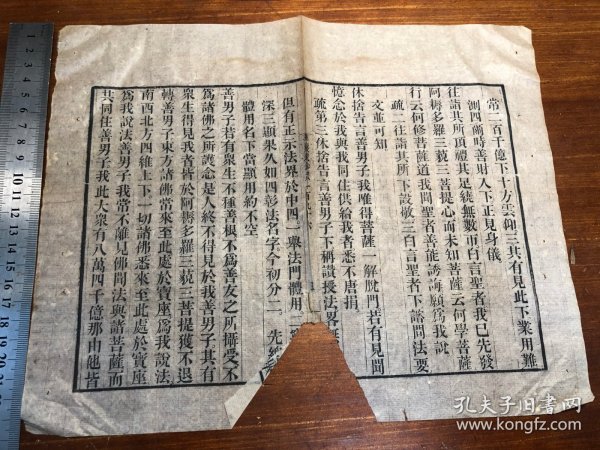 常二百千億下十方雲仰三共有見此下業用難
測四爾時善財人下正見身儀
往詣其所頂禮其足繞無數帀白言聖者我已先發
阿耨多羅三藐三菩提心而未知菩薩云何學菩薩
行云何修菩薩道我聞聖者善能誘誨願為我說
疏二往詣其所下設敬三白言聖者下諮問法要
文並可知
休捨告言善男子我唯得菩薩一解脫門若有見聞
憶念於我與我同住供給我者悉不唐捐
疏第三休捨告言善男子下稱讚授法界
但有正示法界於中四一舉法門體用二
深三顯果久如四彰法名字今初分二先
體用名下當顯用約不空
善男子若有眾生不種善根不為善友之所攝受不
為諸佛之所護念是人終不得見於我善男子其有
眾生得見我者皆於阿耨多羅三藐三菩提獲不退
轉善男子東方諸佛常來至此處於寶座為我說法
南西北方四維上下一切諸佛悉來至此處於寶座
為我說法善男子我常不離見佛聞法與諸菩薩而
共同住善男子我此大眾有八萬四千億那由他皆
孔夫子旧书网
www.kongfz.com